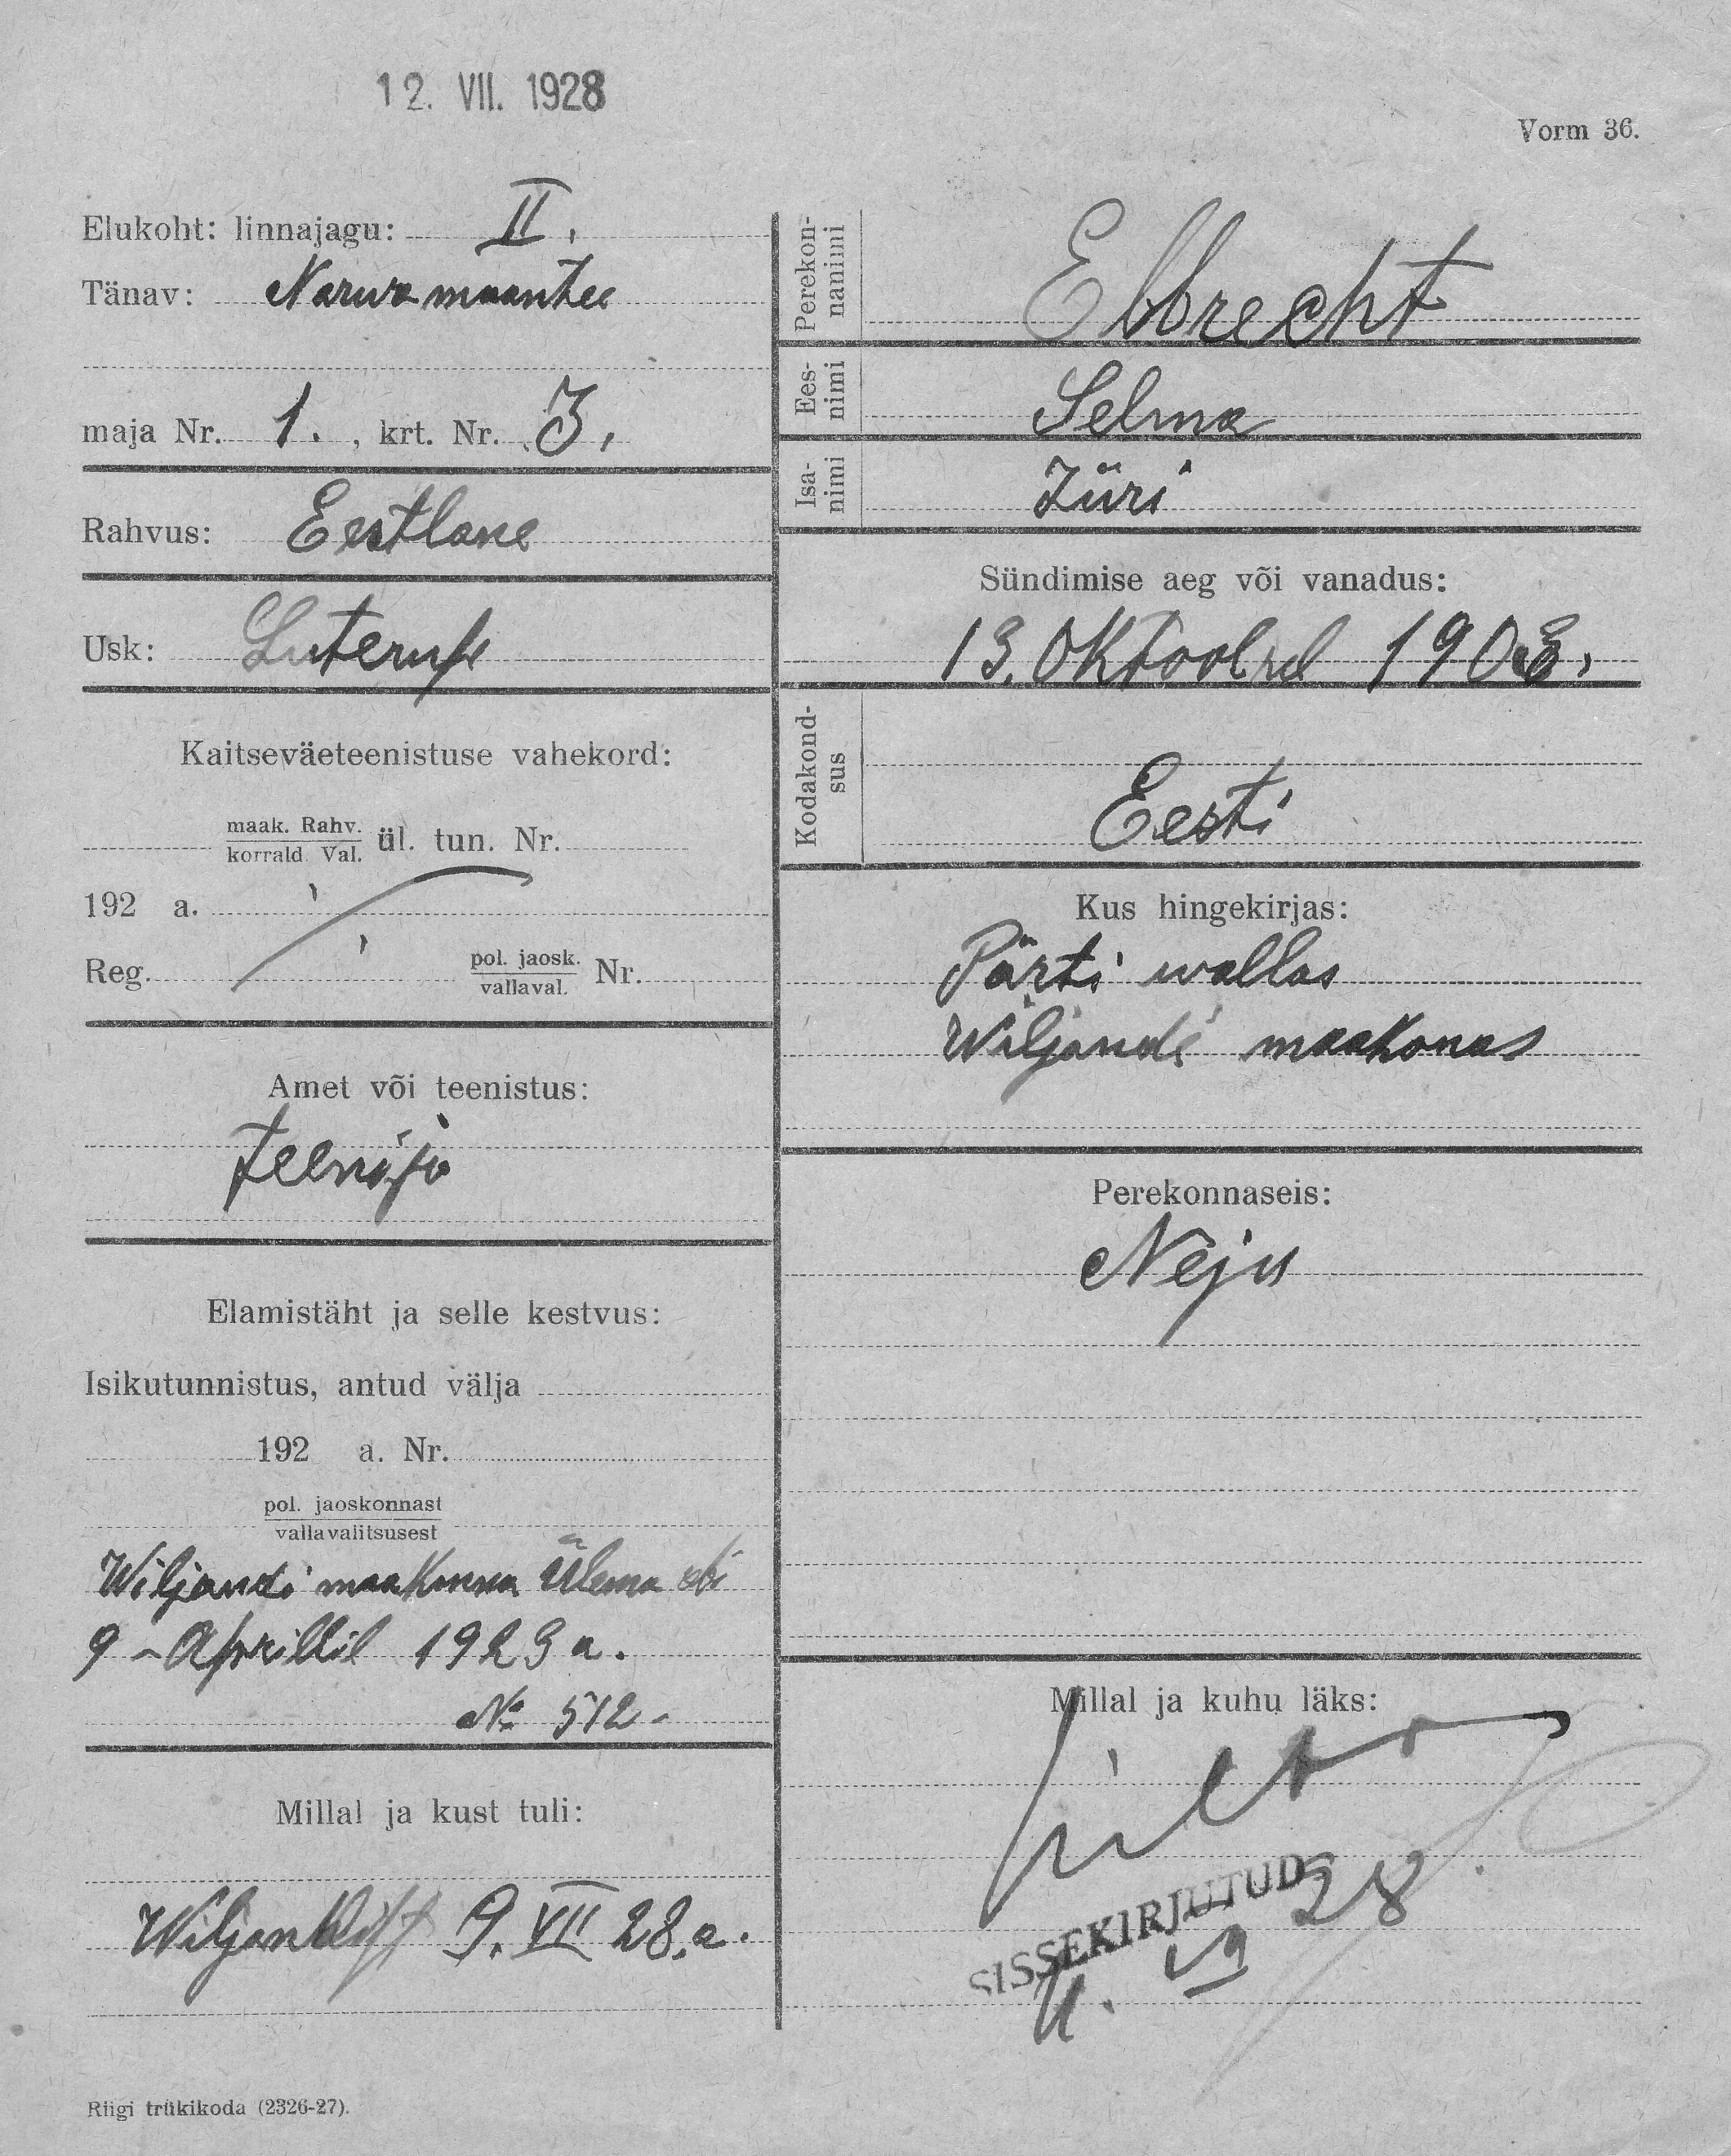 12. VII. 1928
Vorm 36.
Elukoht: linnajagu: II.
Tänav: Narwa maantee
maja Nr. 1. , krt. Nr. 3.
Rahvus: Eestlane
Usk: Luterusu
Kaitseväeteenistuse vahekord:
maak. Rahv.
korrald. Val. ül. tun. Nr.
192 a.
Reg. pol. jaosk.
vallaval. Nr.
Amet või teenistus:
teenija
Elamistäht ja selle kestvus:
Isikutunnistus, antud välja
192 a. Nr.
pol. jaoskonnast
vallavalitsusest
Wiljandi maakonna Ülema abi
9 Aprillil 1923 a.
№ 512
Millal ja kust tuli:
Wiljandist 9. VII 28. a.
Riigi trükikoda (2326-27).
Perekon-
nanimi Ebbrecht
Ees-
nimi Selma
Isa-
nimi Jüri
Sündimise aeg või vanadus:
13. Oktoobril 1903.
Kodakond-
sus Eesti
Kus hingekirjas:
Pärsti wallas
Wiljandi maakonas
Perekonnaseis:
Neju
Millal ja kuhu läks:
SISSEKIRJUTUD
28